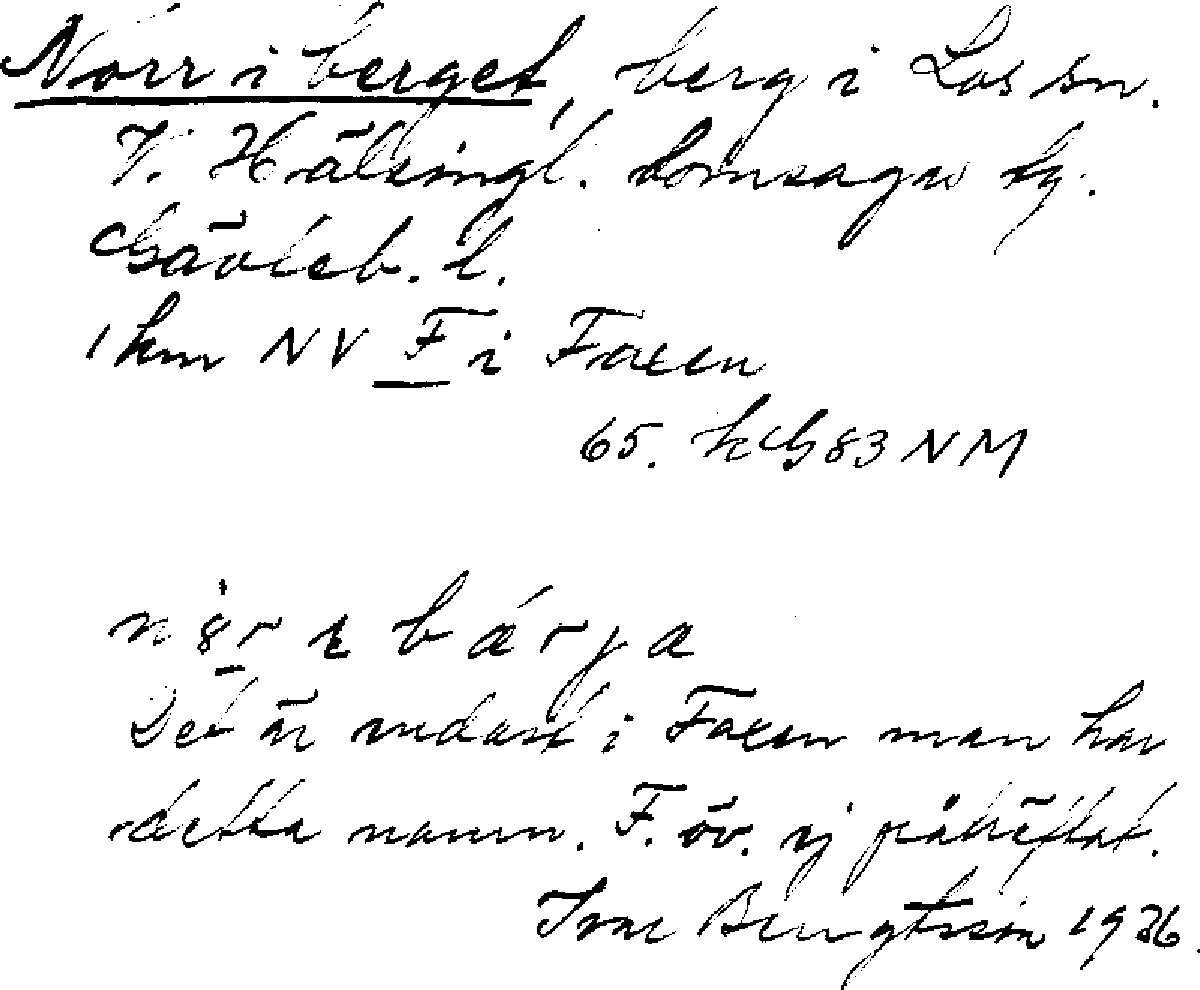 Norr i berget, berg i Los sn.
V. Hälsingl. domsagas tg.
Gävleb. l.
1 km NV F i Faxen
65. kG83NM
bárja
Det är endast i Faxen man har
detta namn. F. öv. ej påträffat.
Ivar Bengtsson 1936.